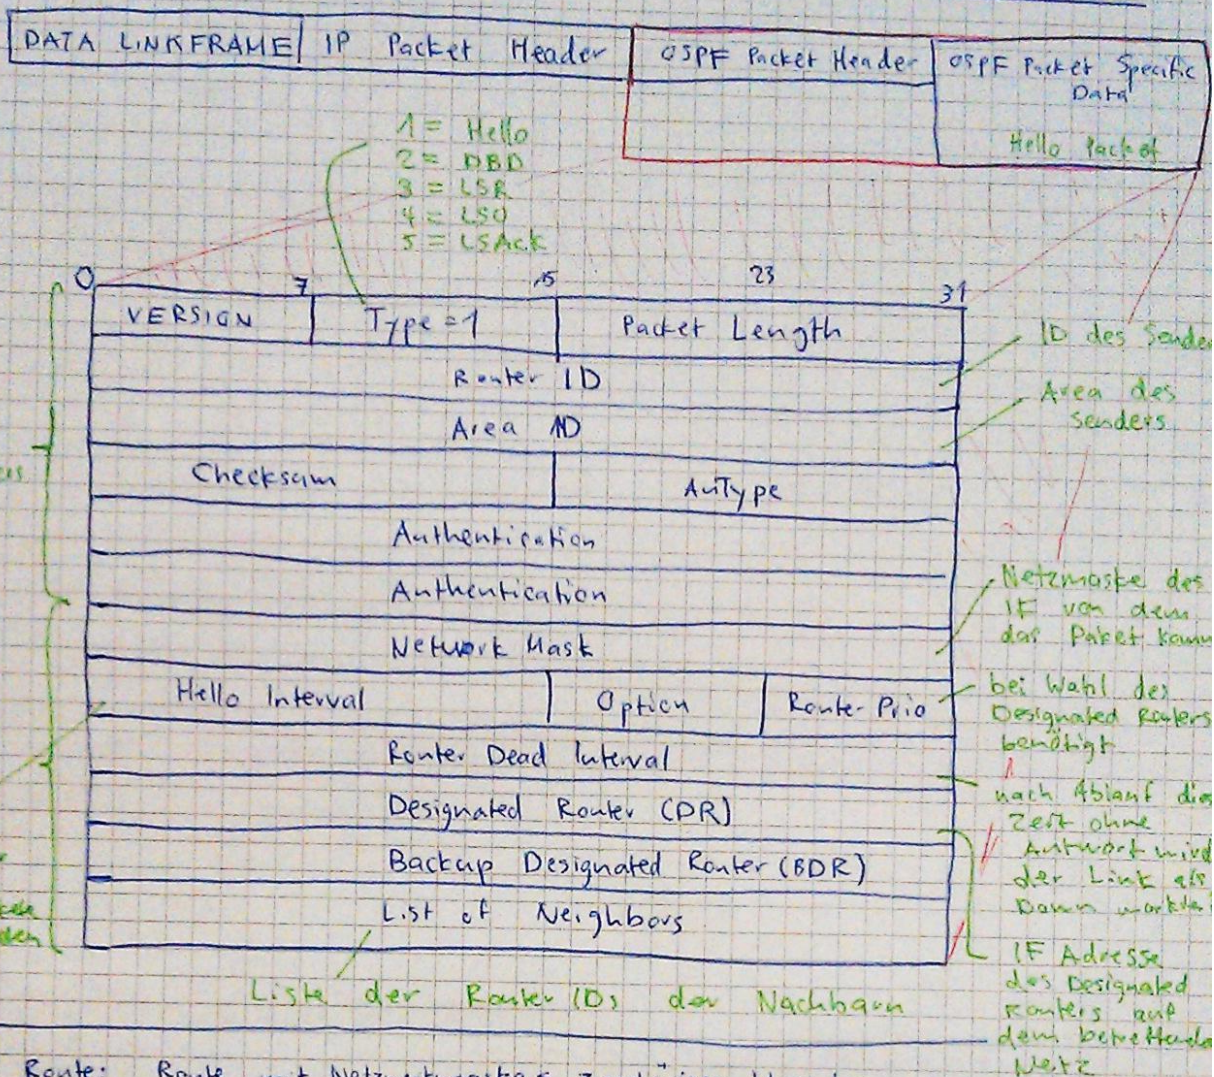 DATA LINKFRAME IP Packet Header OSPF Packet Header OSPF Packet Specific
Data
Hello Packet
1 = Hello
2 = DBD
3 = LSR
4 = LSU
5 = LSAck
0 7 15 23 31
VERSION Type = 1 Packet Length
Router ID
Area ID
Checksum AuType
Authentication
Authentication
Network Mask
Hello Interval Option Router Prio
Router Dead Interval
Designated Router (DR)
Backup Designated Router (BDR)
List of Neighbors
Liste der Router IDs der Nachbarn
ID des Sender
Area des
Senders
Netzmaske des
IF von dem
das Paket kam
bei Wahl des
Designated Routers
benötigt
nach Ablauf
Zeit ohne
Antwort wird
der Link als
Down
IF Adresse
des Designated
Routers auf
dem
Netz
Route: Route